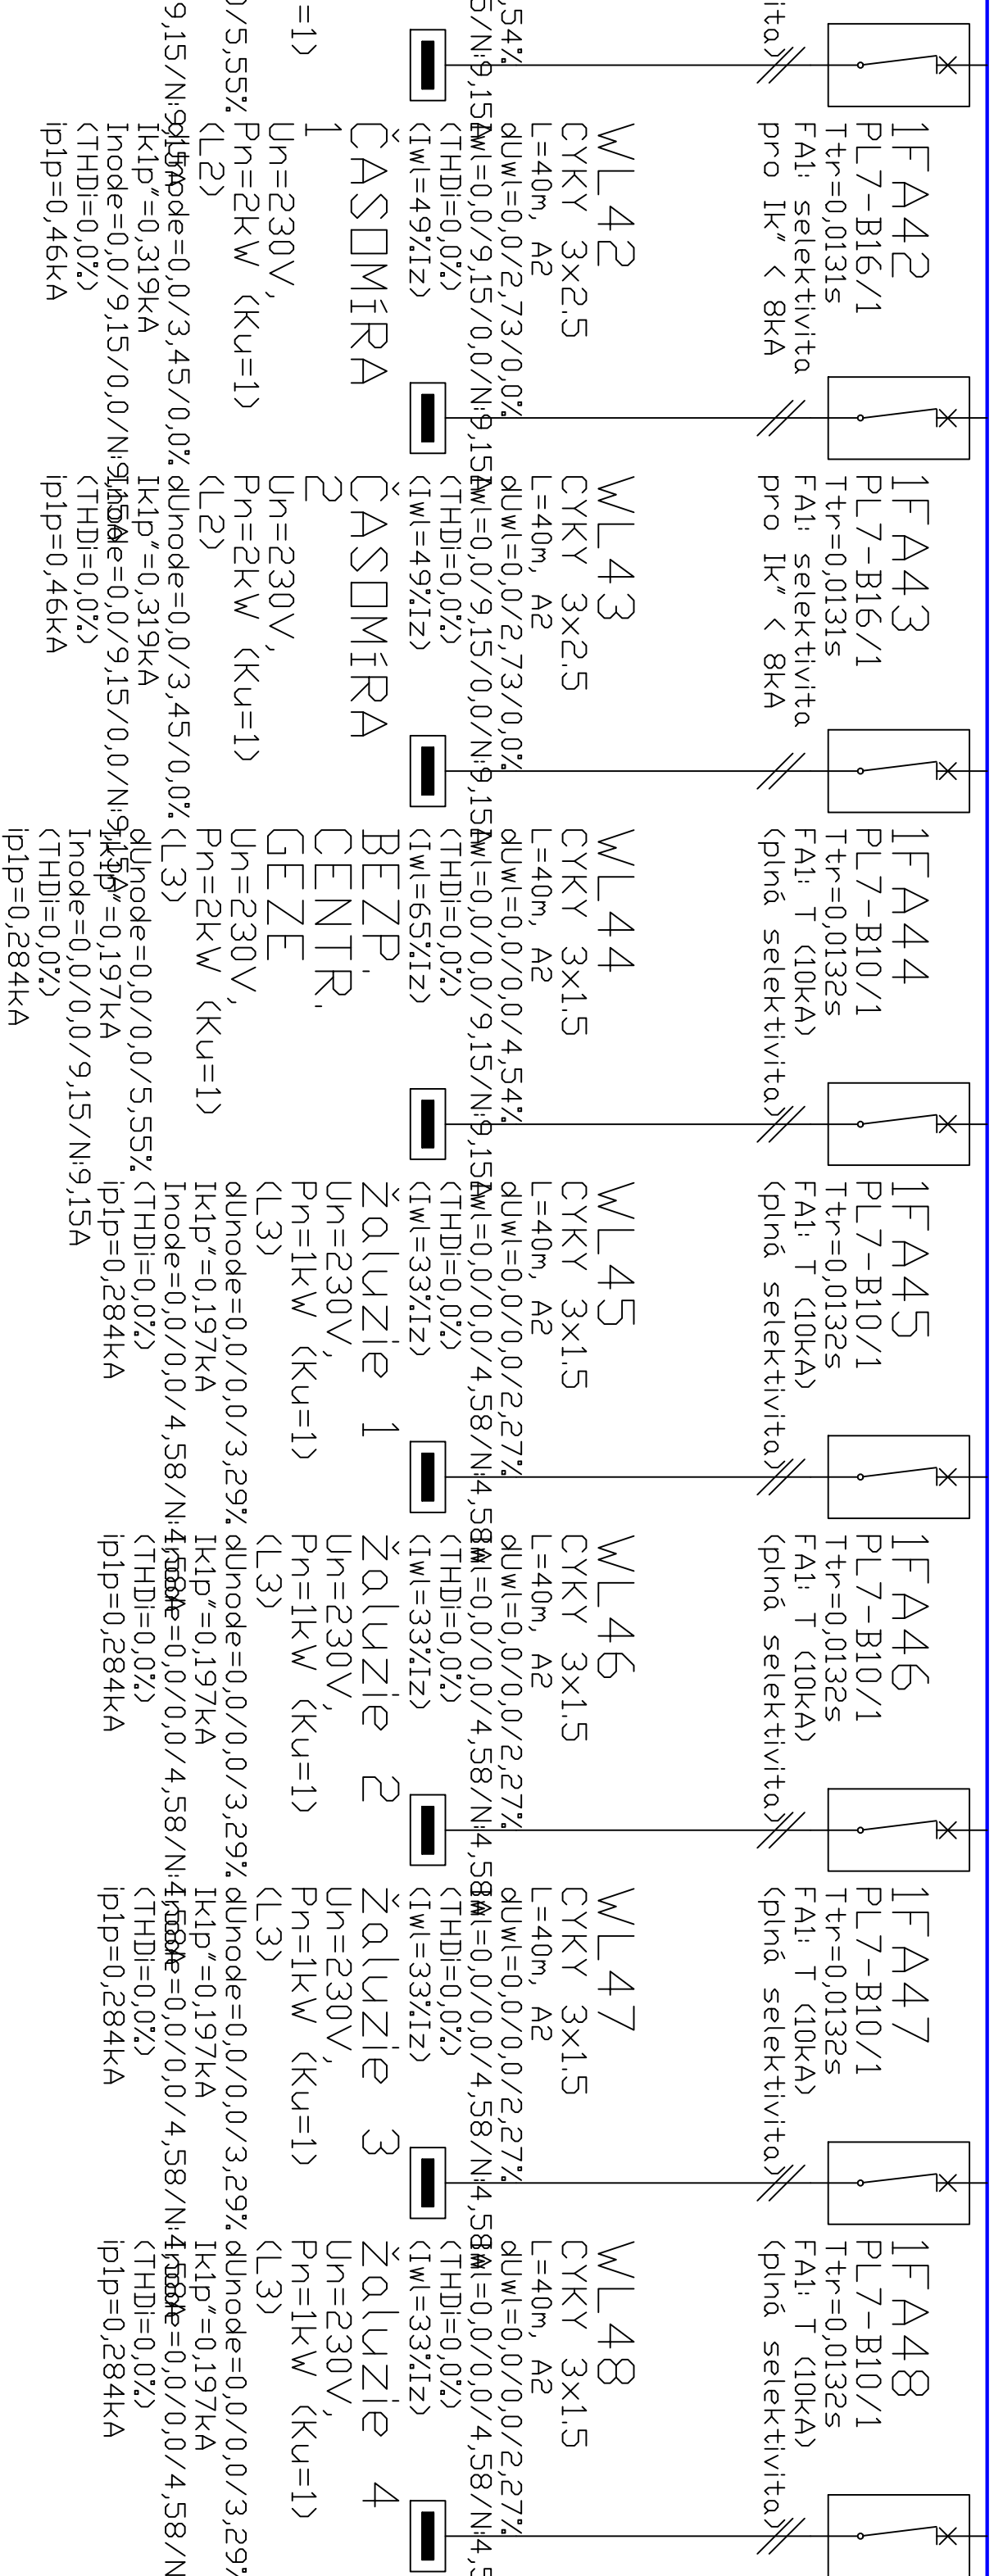 ita)
,54%
5/N:9,15A
=1)
0/5,55%
9,15/N:9,15A
1FA42
PL7-B16/1
Ttr=0,0131s
FA1: selektivita
pro Ik" < 8kA
WL42
CYKY 3x2.5
L=40m, A2
dUwl=0,0/2,73/0,0%
Iwl=0,0/9,15/0,0/N:9,15A
(THDi=0,0%)
(Iwl=49%Iz)
ČASOMÍRA
1
Un=230V,
Pn=2kW (Ku=1)
(L2)
dUnode=0,0/3,45/0,0%
Ik1p"=0,319kA
Inode=0,0/9,15/0,0/N:9,15A
(THDi=0,0%)
ip1p=0,46kA
1FA43
PL7-B16/1
Ttr=0,0131s
FA1: selektivita
pro Ik" < 8kA
WL43
CYKY 3x2.5
L=40m, A2
dUwl=0,0/2,73/0,0%
Iwl=0,0/9,15/0,0/N:9,15A
(THDi=0,0%)
(Iwl=49%Iz)
ČASOMÍRA
2
Un=230V,
Pn=2kW (Ku=1)
(L2)
dUnode=0,0/3,45/0,0%
Ik1p"=0,319kA
Inode=0,0/9,15/0,0/N:9,15A
(THDi=0,0%)
ip1p=0,46kA
1FA44
PL7-B10/1
Ttr=0,0132s
FA1: T (10kA)
(plná selektivita)
WL44
CYKY 3x1.5
L=40m, A2
dUwl=0,0/0,0/4,54%
Iwl=0,0/0,0/9,15/N:9,15A
(THDi=0,0%)
(Iwl=65%Iz)
BEZP.
CENTR.
GEZE
Un=230V,
Pn=2kW (Ku=1)
(L3)
dUnode=0,0/0,0/5,55%
Ik1p"=0,197kA
Inode=0,0/0,0/9,15/N:9,15A
(THDi=0,0%)
ip1p=0,284kA
1FA45
PL7-B10/1
Ttr=0,0132s
FA1: T (10kA)
(plná selektivita)
WL45
CYKY 3x1.5
L=40m, A2
dUwl=0,0/0,0/2,27%
Iwl=0,0/0,0/4,58/N:4,58A
(THDi=0,0%)
(Iwl=33%Iz)
Žaluzie 1
Un=230V,
Pn=1kW (Ku=1)
(L3)
dUnode=0,0/0,0/3,29%
Ik1p"=0,197kA
Inode=0,0/0,0/4,58/N:4,58A
(THDi=0,0%)
ip1p=0,284kA
1FA46
PL7-B10/1
Ttr=0,0132s
FA1: T (10kA)
(plná selektivita)
WL46
CYKY 3x1.5
L=40m, A2
dUwl=0,0/0,0/2,27%
Iwl=0,0/0,0/4,58/N:4,58A
(THDi=0,0%)
(Iwl=33%Iz)
Žaluzie 2
Un=230V,
Pn=1kW (Ku=1)
(L3)
dUnode=0,0/0,0/3,29%
Ik1p"=0,197kA
Inode=0,0/0,0/4,58/N:4,58A
(THDi=0,0%)
ip1p=0,284kA
1FA47
PL7-B10/1
Ttr=0,0132s
FA1: T (10kA)
(plná selektivita)
WL47
CYKY 3x1.5
L=40m, A2
dUwl=0,0/0,0/2,27%
Iwl=0,0/0,0/4,58/N:4,58A
(THDi=0,0%)
(Iwl=33%Iz)
Žaluzie 3
Un=230V,
Pn=1kW (Ku=1)
(L3)
dUnode=0,0/0,0/3,29%
Ik1p"=0,197kA
Inode=0,0/0,0/4,58/N:4,58A
(THDi=0,0%)
ip1p=0,284kA
1FA48
PL7-B10/1
Ttr=0,0132s
FA1: T (10kA)
(plná selektivita)
WL48
CYKY 3x1.5
L=40m, A2
dUwl=0,0/0,0/2,27%
Iwl=0,0/0,0/4,58/N:4,5
(THDi=0,0%)
(Iwl=33%Iz)
Žaluzie 4
Un=230V,
Pn=1kW (Ku=1)
(L3)
dUnode=0,0/0,0/3,29%
Ik1p"=0,197kA
Inode=0,0/0,0/4,58/N
(THDi=0,0%)
ip1p=0,284kA